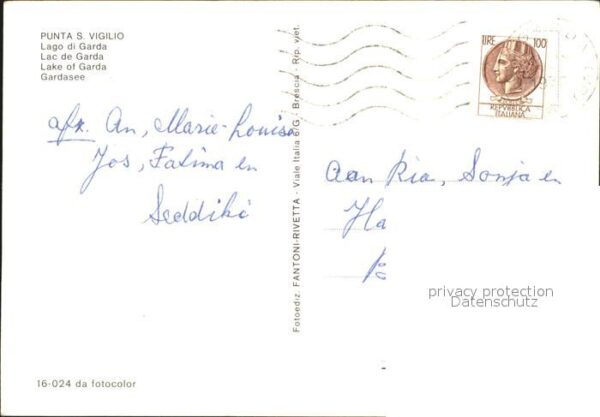 PUNTA S. VIGILIO
Lago di Garda
Lac de Garda
Lake of Garda
Gardasee
afz. An, Marie-Louise
Jos, Fatima en
Seddiki
16-024 da fotocolor
Fotoediz. FANTONI-RIVETTA - Viale Italia 6/G - Brescia - Rip. viet.
LIRE 100
REPVBBLICA
ITALIANA
Aan Ria, Sonja en
privacy protection
Datenschutz